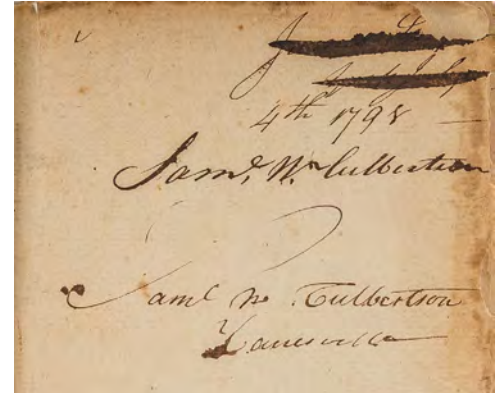 4th 1798
Saml. W. Culbertson
Saml W Culbertson
Zanesville